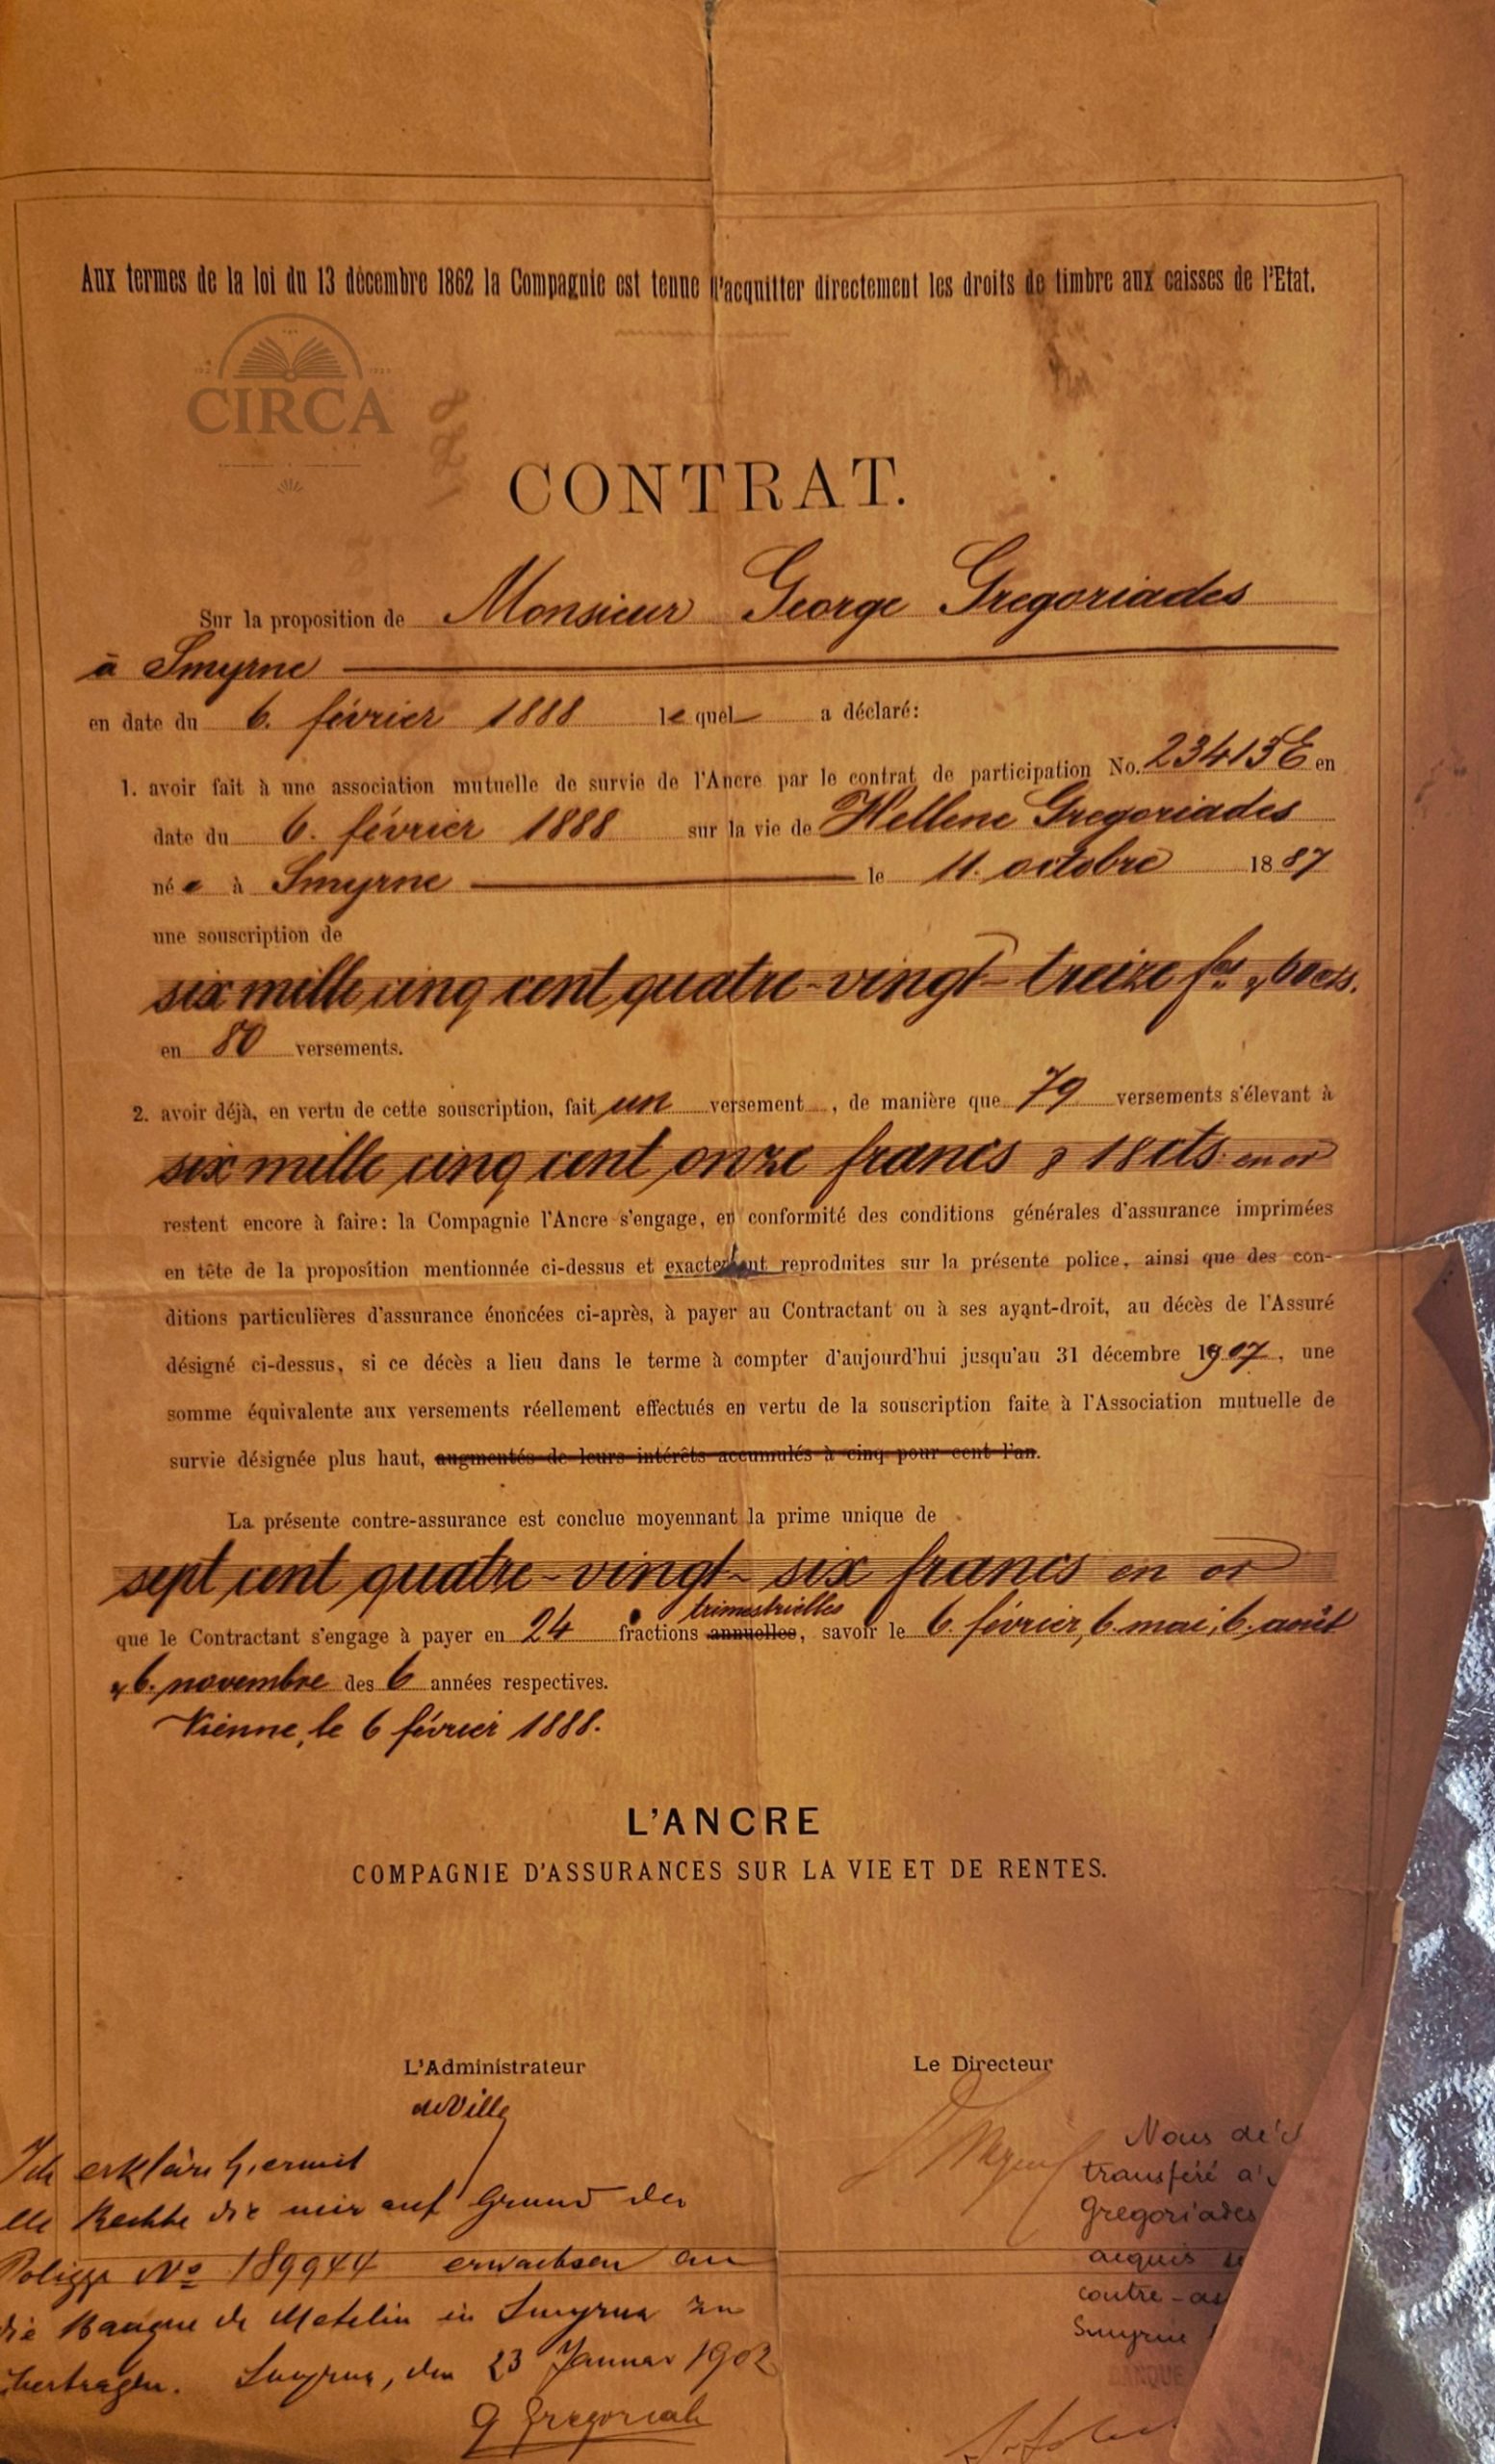 Aux termes de la loi du 13 décembre 1862 la Compagnie est tenue d'acquitter directement les droits de timbre aux caisses de l'Etat.
CIRCA
CONTRAT.
Sur la proposition de Monsieur George Gregoriades
à Smyrne
en date du 6. février 1888 lequel a déclaré:
1. avoir fait à une association mutuelle de survie de l'Ancre par le contrat de participation No. 23415E en
date du 6. février 1888 sur la vie de Hellene Gregoriades
née à Smyrne le 11. octobre 1887
une souscription de
six mille cinq cent quatre-vingt-treize fcs & 60 cts.
en 80 versements.
2. avoir déjà, en vertu de cette souscription, fait un versement, de manière que 79 versements s'élevant à
six mille cinq cent onze francs & 18 cts. en or
restent encore à faire: la Compagnie l'Ancre s'engage, en conformité des conditions générales d'assurance imprimées
en tête de la proposition mentionnée ci-dessus et exactement reproduites sur la présente police, ainsi que des con-
ditions particulières d'assurance énoncées ci-après, à payer au Contractant ou à ses ayant-droit, au décès de l'Assuré
désigné ci-dessus, si ce décès a lieu dans le terme à compter d'aujourd'hui jusqu'au 31 décembre 1907, une
somme équivalente aux versements réellement effectués en vertu de la souscription faite à l'Association mutuelle de
survie désignée plus haut, augmentés de leurs intérêts accumulés à cinq pour cent l'an.
La présente contre-assurance est conclue moyennant la prime unique de
sept cent quatre-vingt-six francs en or
trimestrielles
que le Contractant s'engage à payer en 24 fractions annuelles, savoir le 6. février, 6. mai, 6. août
& 6. novembre des 6 années respectives.
Vienne, le 6 février 1888.
L'ANCRE
COMPAGNIE D'ASSURANCES SUR LA VIE ET DE RENTES.
L'Administrateur
Le Directeur
deVille
Ich erkläre hiermit
alle Rechte die mir auf Grund der
Polizze No 189944 erwachsen an
die Banque de Metelin in Smyrna zu
übertragen. Smyrna, den 23 Januar 1902
G Gregoriades
Nous
transféré
Gregoriades
acquis
contre-as
Smyrne
BANQUE